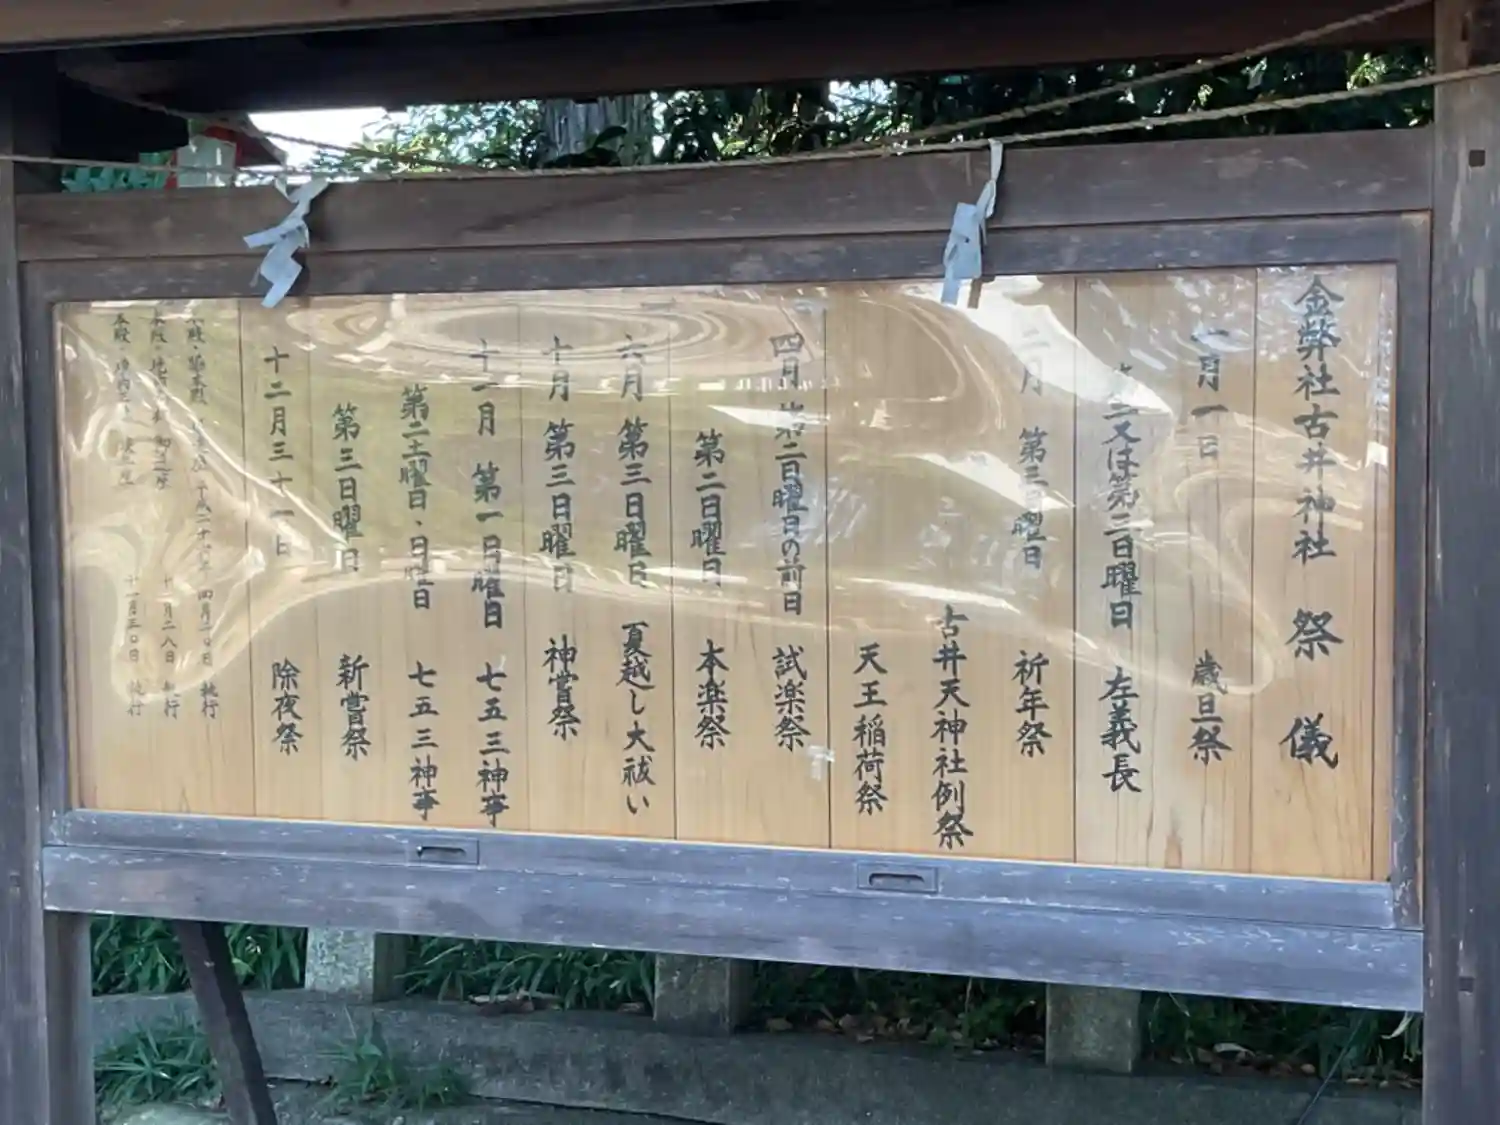 金弊社古井神社 祭 儀
一月一日 歳旦祭
第二又は第三日曜日 左義長
二月 第三日曜日 祈年祭
古井天神社例祭
天王稲荷祭
四月 第二日曜日の前日 試楽祭
第二日曜日 本楽祭
六月 第三日曜日 夏越し大祓い
十月 第三日曜日 神嘗祭
十一月 第一日曜日 七五三神事
第二土曜日・日曜日 七五三神事
第三日曜日 新嘗祭
十二月三十一日 除夜祭
平成二十六年 四月二〇日 執行
十一月二八日 執行
十一月三〇日 執行